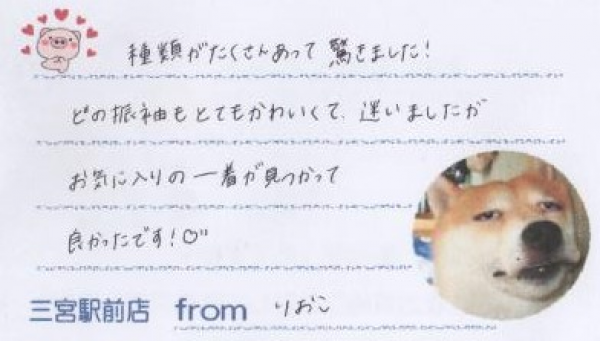 種類がたくさんあって驚きました!
どの振袖もとてもかわいくて、迷いましたが
お気に入りの一着が見つかって
良かったです!♡
三宮駅前店 from りおこ